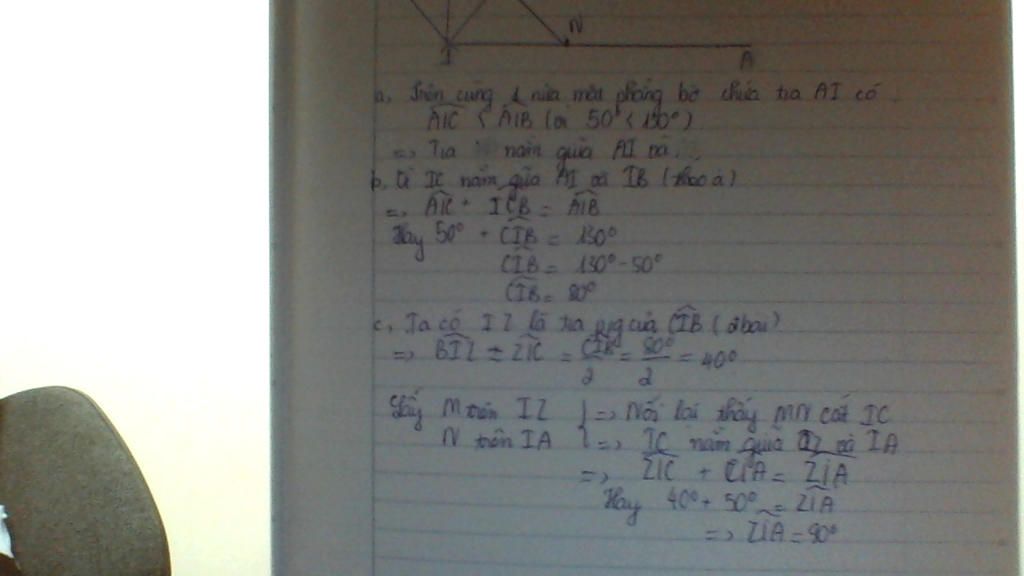 N
I A
a, Trên cùng 1 nửa mặt phẳng bờ chứa tia AI có
AIC < AIB (vì 50° < 130°)
=> Tia nằm giữa AI và
b, Vì IC nằm giữa AI và IB (theo a)
=> AIC + ICB = AIB
Hay 50° + CIB = 130°
CIB = 130° - 50°
CIB = 80°
c, Ta có IZ là tia p/g của CIB (đ bài)
=> BIZ = ZIC = CIB/2 = 80°/2 = 40°
Lấy M trên IZ } => Nối lại thấy MN cắt IC
N trên IA } => IC nằm giữa IZ và IA
=> ZIC + CIA = ZIA
Hay 40° + 50° = ZIA
=> ZIA = 90°